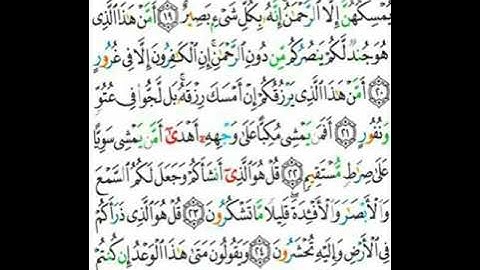 يُمْسِكُهُنَّ إِلَّا الرَّحْمَٰنُ إِنَّهُ بِكُلِّ شَيْءٍ بَصِيرٌ ﴿١٩﴾ أَمَّنْ هَٰذَا الَّذِي
هُوَ جُندٌ لَّكُمْ يَنصُرُكُم مِّن دُونِ الرَّحْمَٰنِ إِنِ الْكَافِرُونَ إِلَّا فِي غُرُورٍ
﴿٢٠﴾ أَمَّنْ هَٰذَا الَّذِي يَرْزُقُكُمْ إِنْ أَمْسَكَ رِزْقَهُ بَل لَّجُّوا فِي عُتُوٍّ
وَنُفُورٍ ﴿٢١﴾ أَفَمَن يَمْشِي مُكِبًّا عَلَىٰ وَجْهِهِ أَهْدَىٰ أَمَّن يَمْشِي سَوِيًّا
عَلَىٰ صِرَاطٍ مُّسْتَقِيمٍ ﴿٢٢﴾ قُلْ هُوَ الَّذِي أَنشَأَكُمْ وَجَعَلَ لَكُمُ السَّمْعَ
وَالْأَبْصَارَ وَالْأَفْئِدَةَ قَلِيلًا مَّا تَشْكُرُونَ ﴿٢٣﴾ قُلْ هُوَ الَّذِي ذَرَأَكُمْ
فِي الْأَرْضِ وَإِلَيْهِ تُحْشَرُونَ ﴿٢٤﴾ وَيَقُولُونَ مَتَىٰ هَٰذَا الْوَعْدُ إِن كُنتُمْ